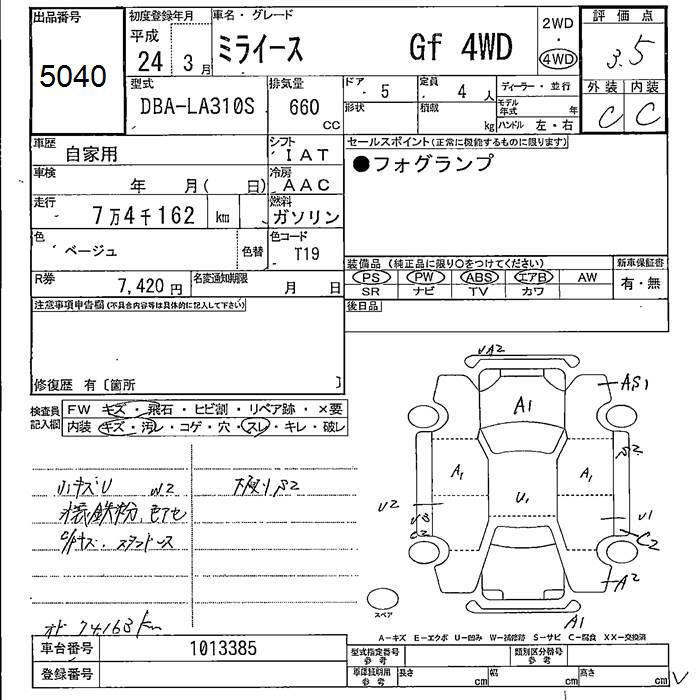 出品番号
5040
初度登録年月
平成
24 3 月
車名・グレード
ミライース Gf 4WD
2WD
・
4WD
評価点
3.5
外装 内装
C C
型式
DBA-LA310S
排気量
660
CC
ドア 5
形状
定員 4 人
積載 kg
ディーラー・並行
モデル年式 年
ハンドル 左・右
車歴
自家用
シフト
IAT
車検
年 月( 日)
冷房
AAC
走行
7万4千162 km
燃料
ガソリン
色
ベージュ
色替
色コード
T19
R券
7,420 円
名変通知期限
月 日
セールスポイント(正常に機能するものに限ります)
●フォグランプ
装備品 (純正品に限り○をつけてください)
PS PW ABS エアB AW
SR ナビ TV カワ
新車保証書
有・無
後日品
注意事項申告欄(不具合内容等は具体的に記入して下さい)
修復歴 有〔箇所 〕
検査員
記入欄
FW キズ・飛石・ヒビ割・リペア跡・×要
内装 キズ・汚レ・コゲ・穴・スレ・キレ・破レ
小キズU W2
鉄粉
オド 74163 km
A2
AS1
A1
A1
A1
U1
β2
U2
U3
U1
C2
A2
A1
スペア
A-キズ E-エクボ U-凹み W-補修跡 S-サビ C-腐食 XX-交換済
車台番号
1013385
登録番号
型式指定番号
参考
類別区分番号
参考
車庫証明用
参考
長さ cm 幅 cm 高さ cm